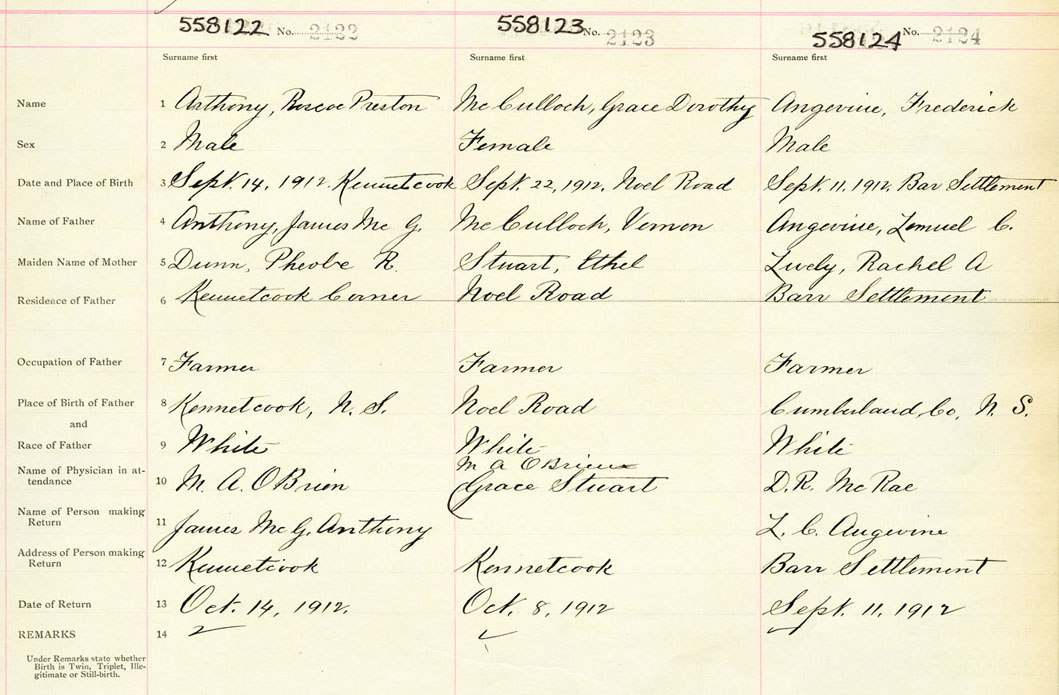 558122 No. 2122 558123 No. 2123 558124 No. 2124
Surname first Surname first Surname first
Name 1 Anthony, Roscoe Preston McCulloch, Grace Dorothy Angevine, Frederick
Sex 2 Male Female Male
Date and Place of Birth 3 Sept. 14, 1912. Kennetcook Sept. 22, 1912, Noel Road Sept. 11, 1912, Bar Settlement
Name of Father 4 Anthony, James Mc G. McCulloch, Vernon Angevine, Lemuel C.
Maiden Name of Mother 5 Dunn, Pheobe R. Stuart, Ethel Lively, Rachel A
Residence of Father 6 Kennetcook Corner Noel Road Barr Settlement
Occupation of Father 7 Farmer Farmer Farmer
Place of Birth of Father 8 Kennetcook, N. S. Noel Road Cumberland Co, N. S.
and
Race of Father 9 White White White
M A OBrien
Name of Physician in at-
tendance 10 M. A. OBrien (Grace Stuart D. R. McRae
Name of Person making
Return 11 James McG. Anthony L. C. Angevine
Address of Person making
Return 12 Kennetcook Kennetcook Barr Settlement
Date of Return 13 Oct. 14, 1912. Oct. 8, 1912 Sept. 11, 1912
REMARKS 14
Under Remarks state whether
Birth is Twin, Triplet, Ille-
gitimate or Still-birth.